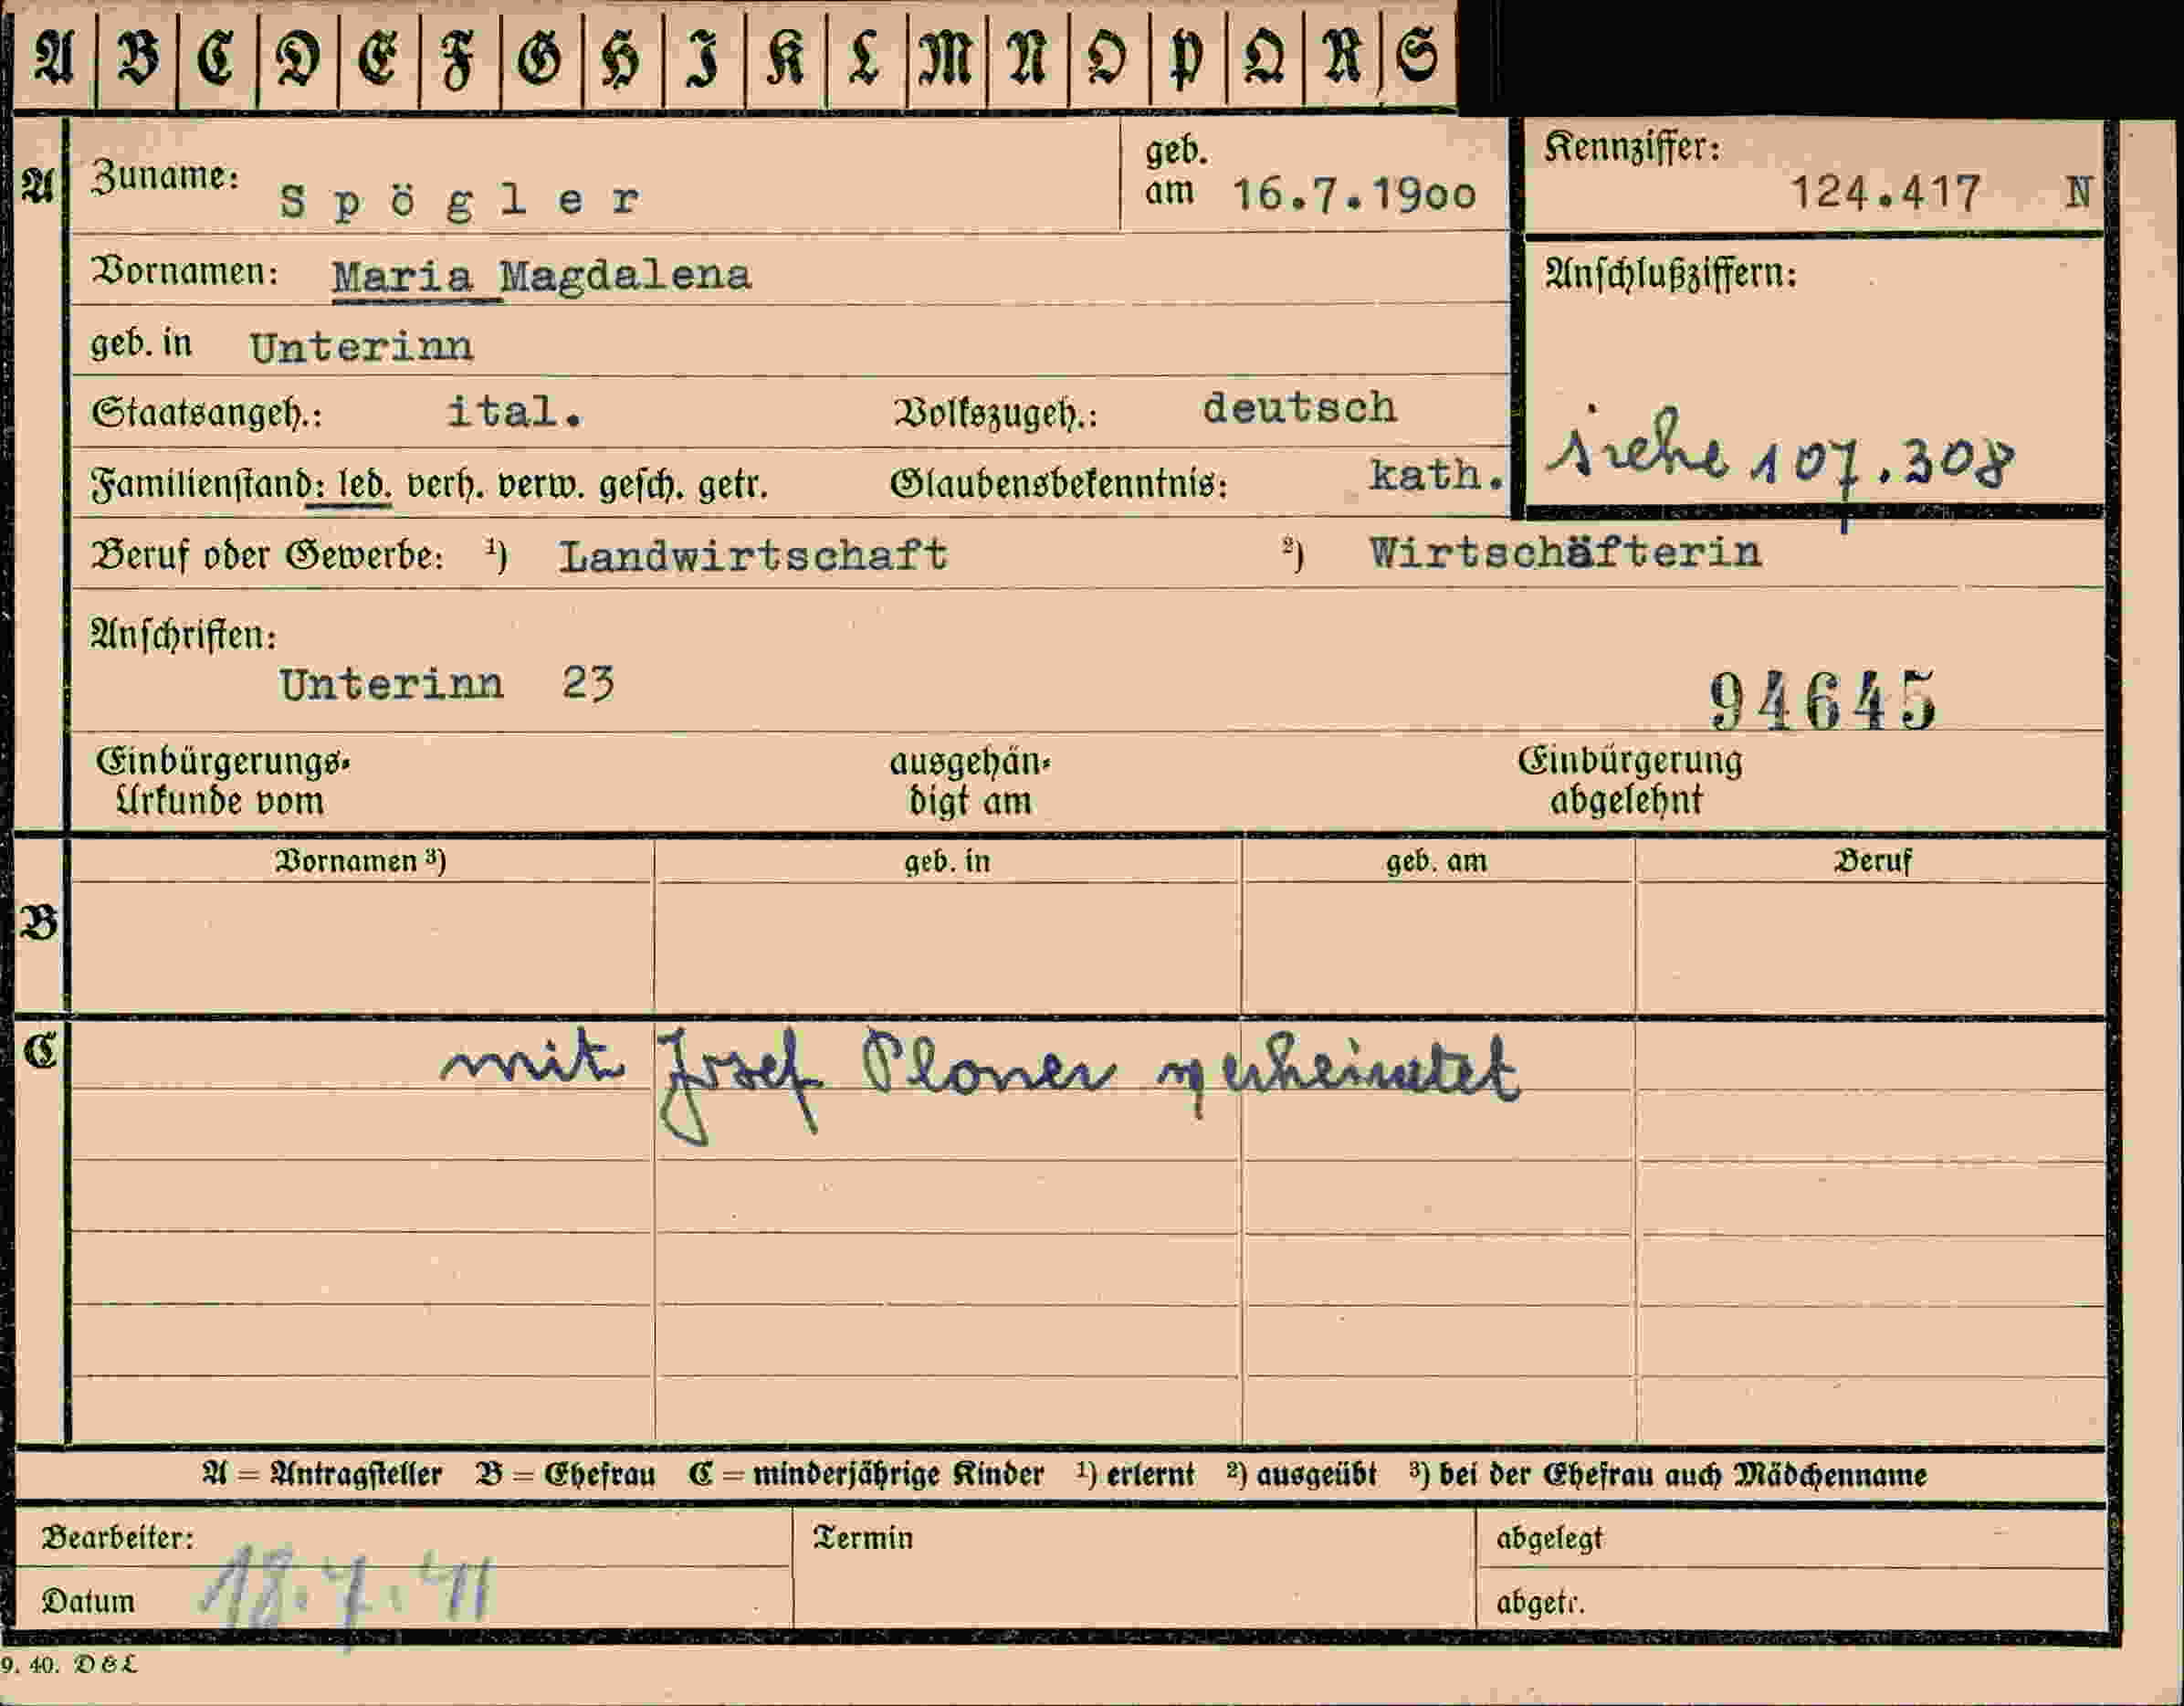 A B C D E F G H I K L M N O P Q R S
A
Zuname: Spögler
geb. am 16.7.1900
Kennziffer: 124.417 N
Vornamen: Maria Magdalena
Anschlußziffern:
geb. in Unterinn
Staatsangeh.: ital. Volkszugeh.: deutsch
siehe 107.308
Familienstand: led. verh. verw. gesch. getr. Glaubensbekenntnis: kath.
Beruf oder Gewerbe: ¹) Landwirtschaft ²) Wirtschäfterin
Anschriften:
Unterinn 23
94645
Einbürgerungs-
Urkunde vom
ausgehän-
digt am
Einbürgerung
abgelehnt
B
Vornamen ³) geb. in geb. am Beruf
C
mit Josef Ploner verheiratet
A = Antragsteller B = Ehefrau C = minderjährige Kinder ¹) erlernt ²) ausgeübt ³) bei der Ehefrau auch Mädchenname
Bearbeiter:
Termin
abgelegt
Datum 18.7.41
abgetr.
9. 40. D&L